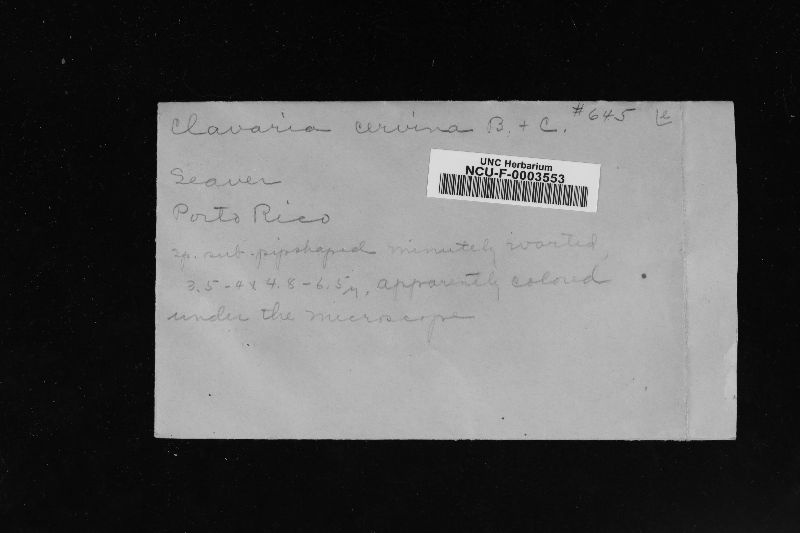 Clavaria cervina B. + C. #645 le
UNC Herbarium
NCU-F-0003553
Seaver
Porto Rico
sp. sub-pipshaped minutely warted,
3.5-4 x 4.8-6.5μ, apparently colored
under the microscope